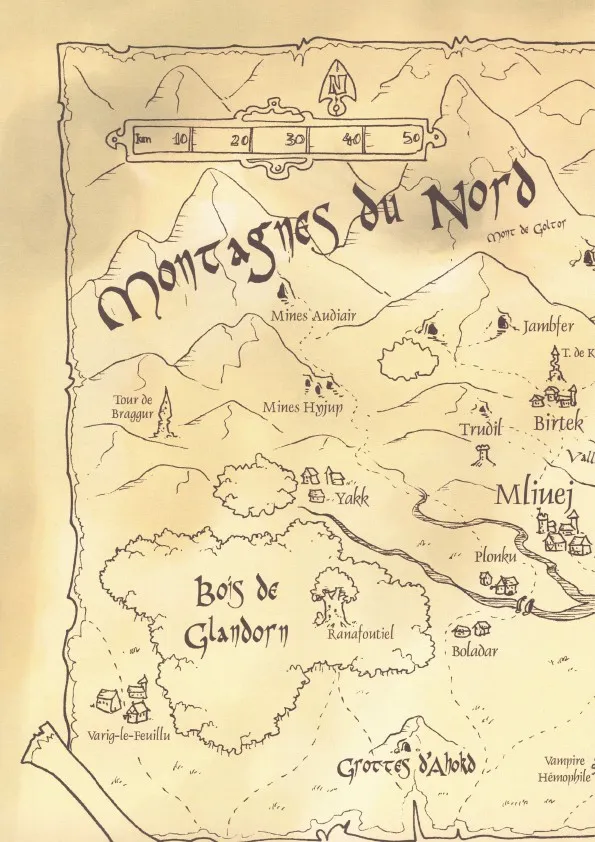 N
km 10 20 30 40 50
Montagnes du Nord
Mont de Goltor
Mines Audiair
Jambfer
T. de K
Tour de
Braggur
Mines Hyjup
Trudil
Birtek
Vall
Yakk
Mliuej
Plonku
Bois de
Glandorn
Ranafoutiel
Boladar
Varig-le-Feuillu
Grottes d'Ahokd
Vampire
Hémophile